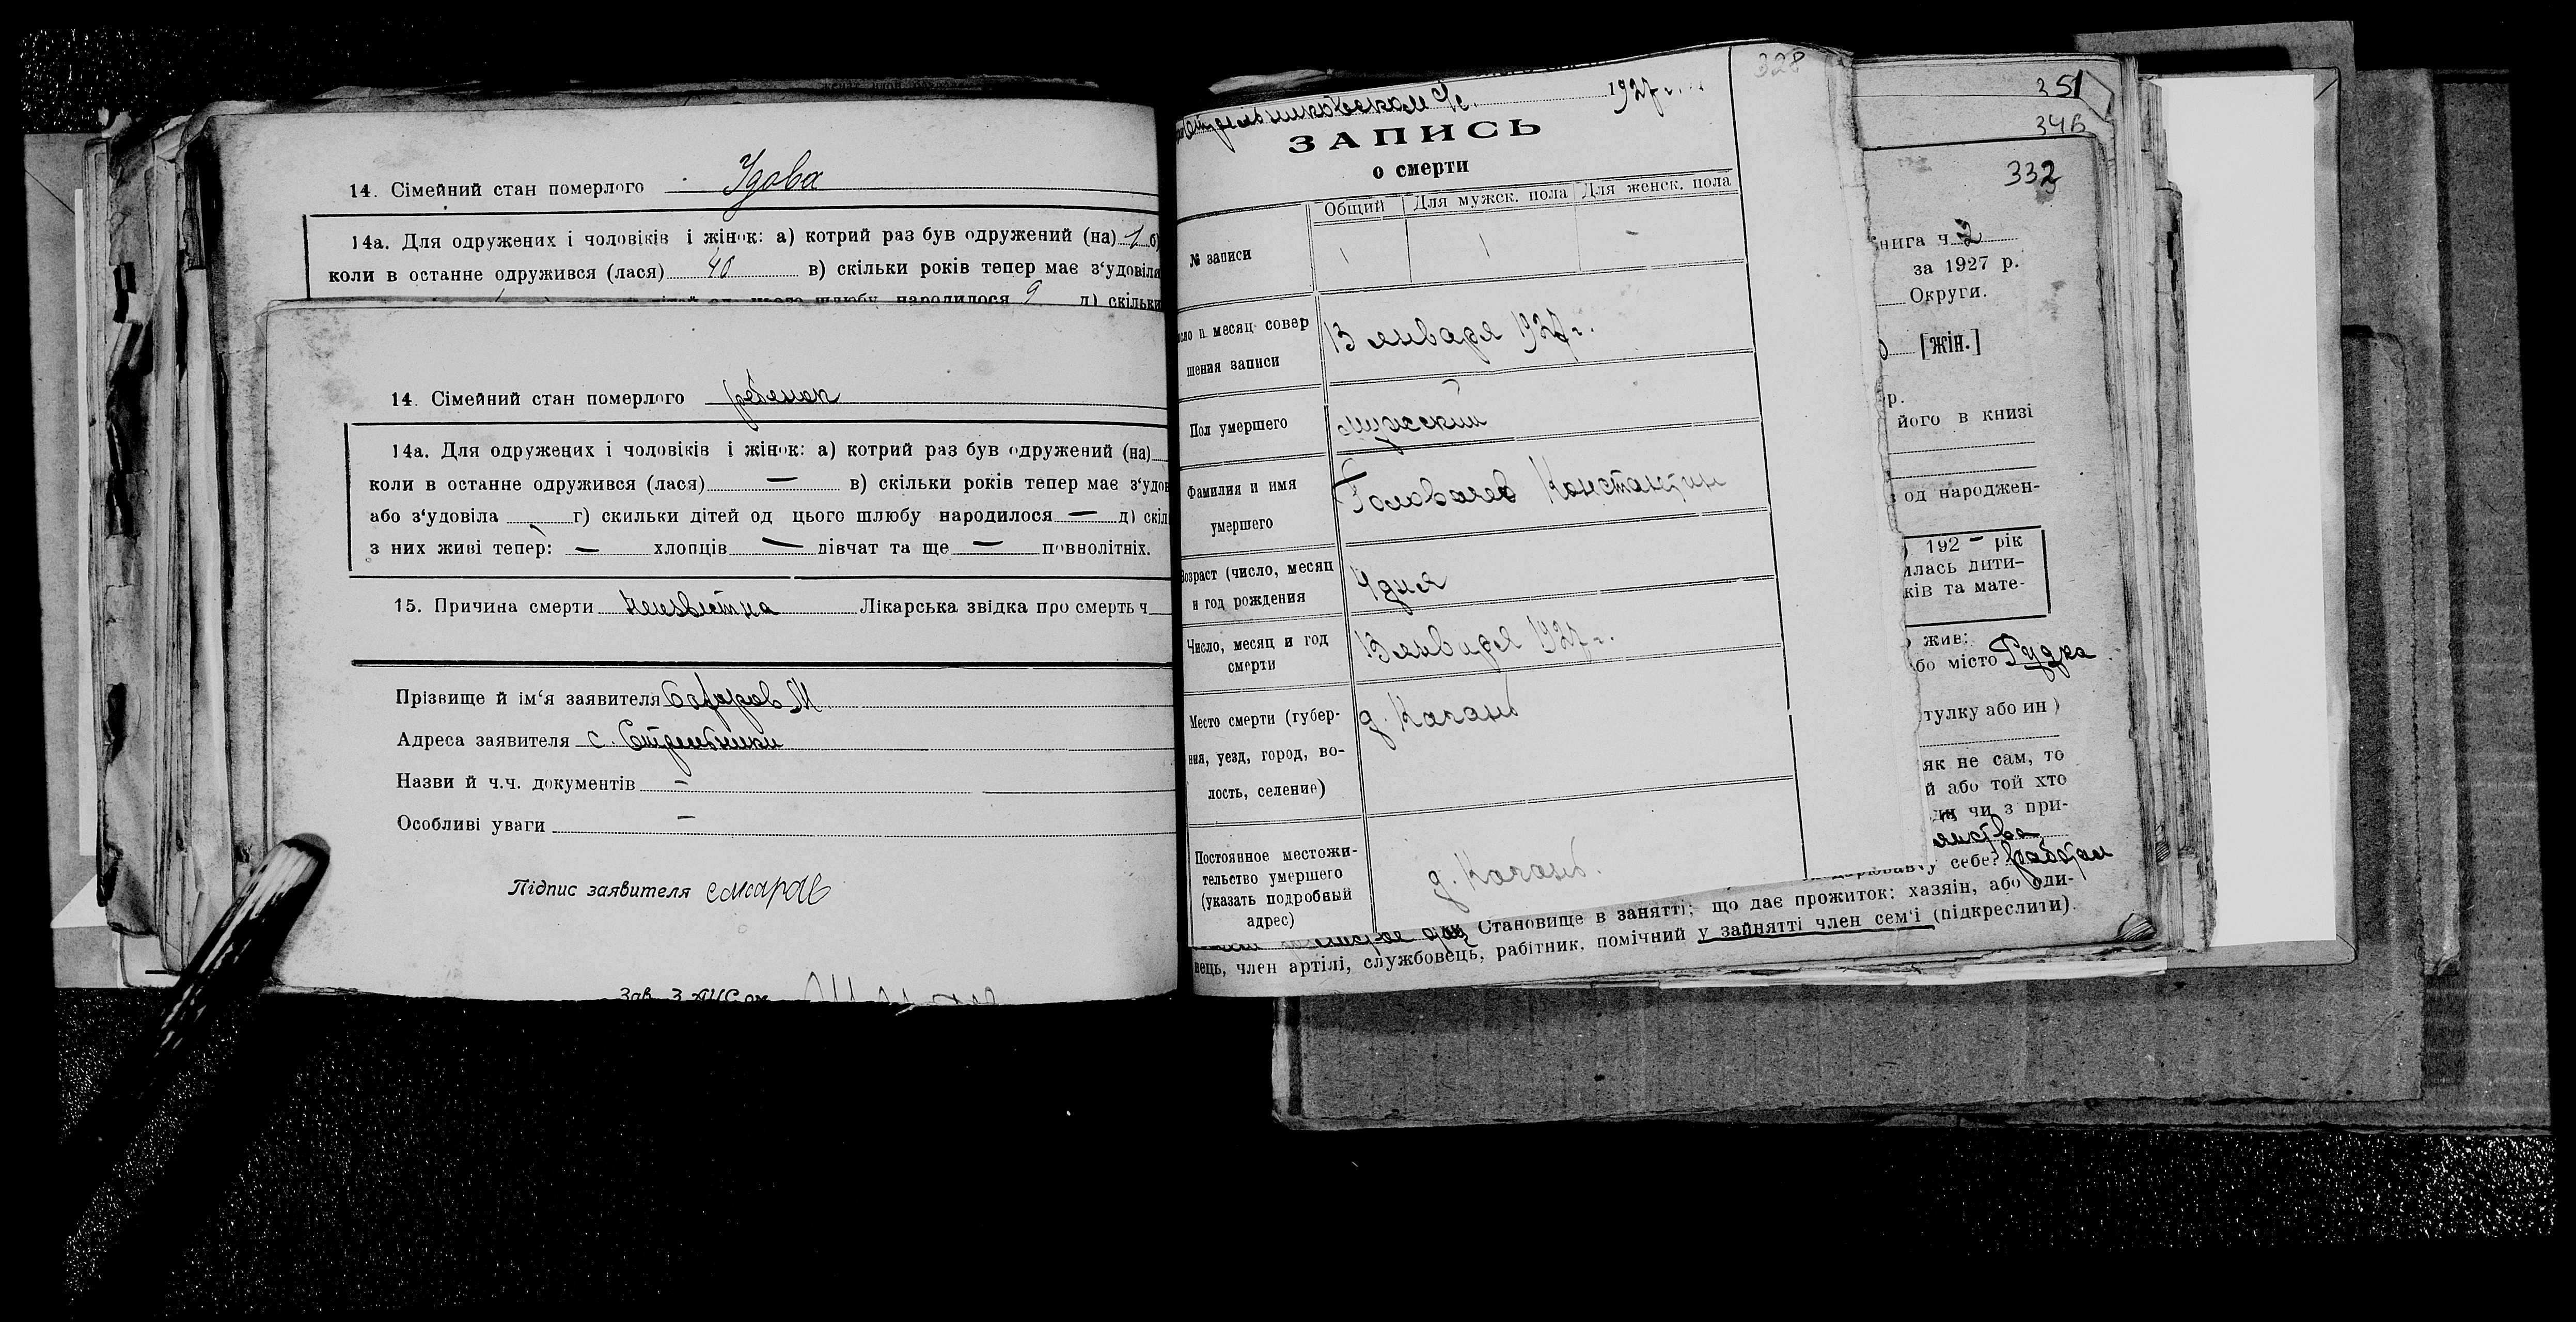 14. Сімейний стан померлого Удова
14а. Для одружених і чоловіків і жінок: а) котрий раз був одружений (на) 1 б)
коли в останне одружився (лася) 40 в) скільки років тепер має з'удовіла
шлюбу народилося 9 д) скільки
14. Сімейний стан померлого ребенок
14а. Для одружених і чоловіків і жінок: а) котрий раз був одружений (на)
коли в останне одружився (лася) — в) скільки років тепер має з'удов
або з'удовіла г) скильки дітей од цього шлюбу народилося — д) скіл
з них живі тепер: — хлопців — дівчат та ще — повнолітніх.
15. Причина смерти неизвестна Лікарська звідка про смерть ч
Прізвище й ім'я заявителя М
Адреса заявителя с. Стрельники
Назви й ч.ч. документів —
Особливі уваги —
Підпис заявителя
Зав. З
1927 г.
328
ЗАПИСЬ
о смерти
Общий Для мужск. пола Для женск. пола
№ записи 1 1 -
число и месяц совер
шения записи
13 января 1927 г.
Пол умершего мужский
Фамилия и имя
умершего
Головачев Константин
Возраст (число, месяц
и год рождения
4 дня
Число, месяц и год
смерти
13 января 1927 г.
Место смерти (губер-
ния, уезд, город, во-
лость, селение)
Постоянное местожи-
тельство умершего
(указать подробный
адрес)
351
34Б
332
нига ч. 2
за 1927 р.
Округи.
[жін.]
р.
його в книзі
од народжен-
) 192 — рік
илась дити-
ків та мате-
жив:
бо місто Рудка
тулку або ин)
як не сам, то
й або той хто
чи з при-
себе?
Становище в занятті; що дає прожиток: хазяін, або оди-
нець, член артілі, службовець, рабітник, помічний у зайнятті член сем'і (підкреслити).